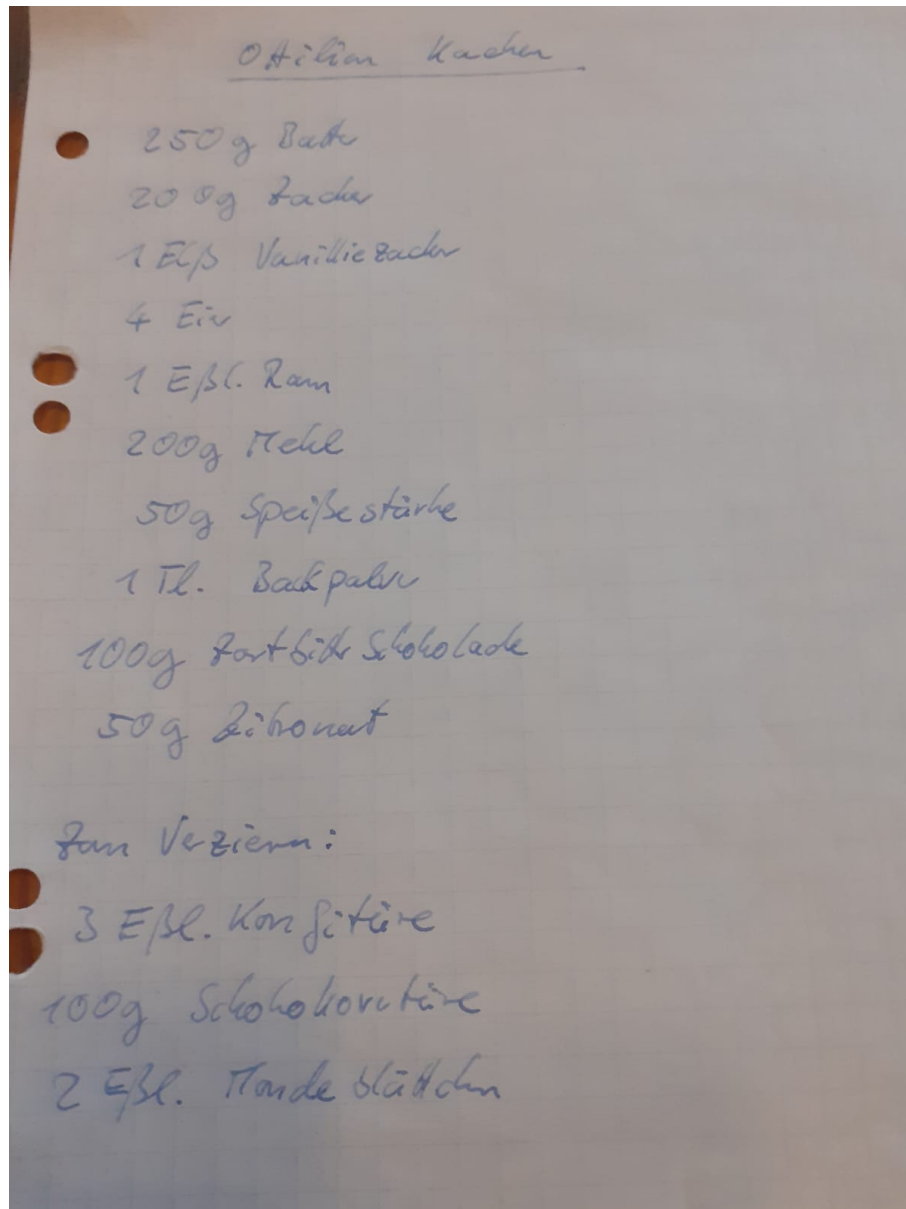 Ottilien Kuchen
250g Butter
200g Zucker
1 Eßl Vanilliezucker
4 Eier
1 Eßl. Rum
200g Mehl
50g Speißestärke
1 Tl. Backpulver
100g Zartbitter Schokolade
50g Zitronat
Zum Verziern:
3 Eßl. Konfitüre
100g Schokokovetüre
2 Eßl. Mandelblättchen